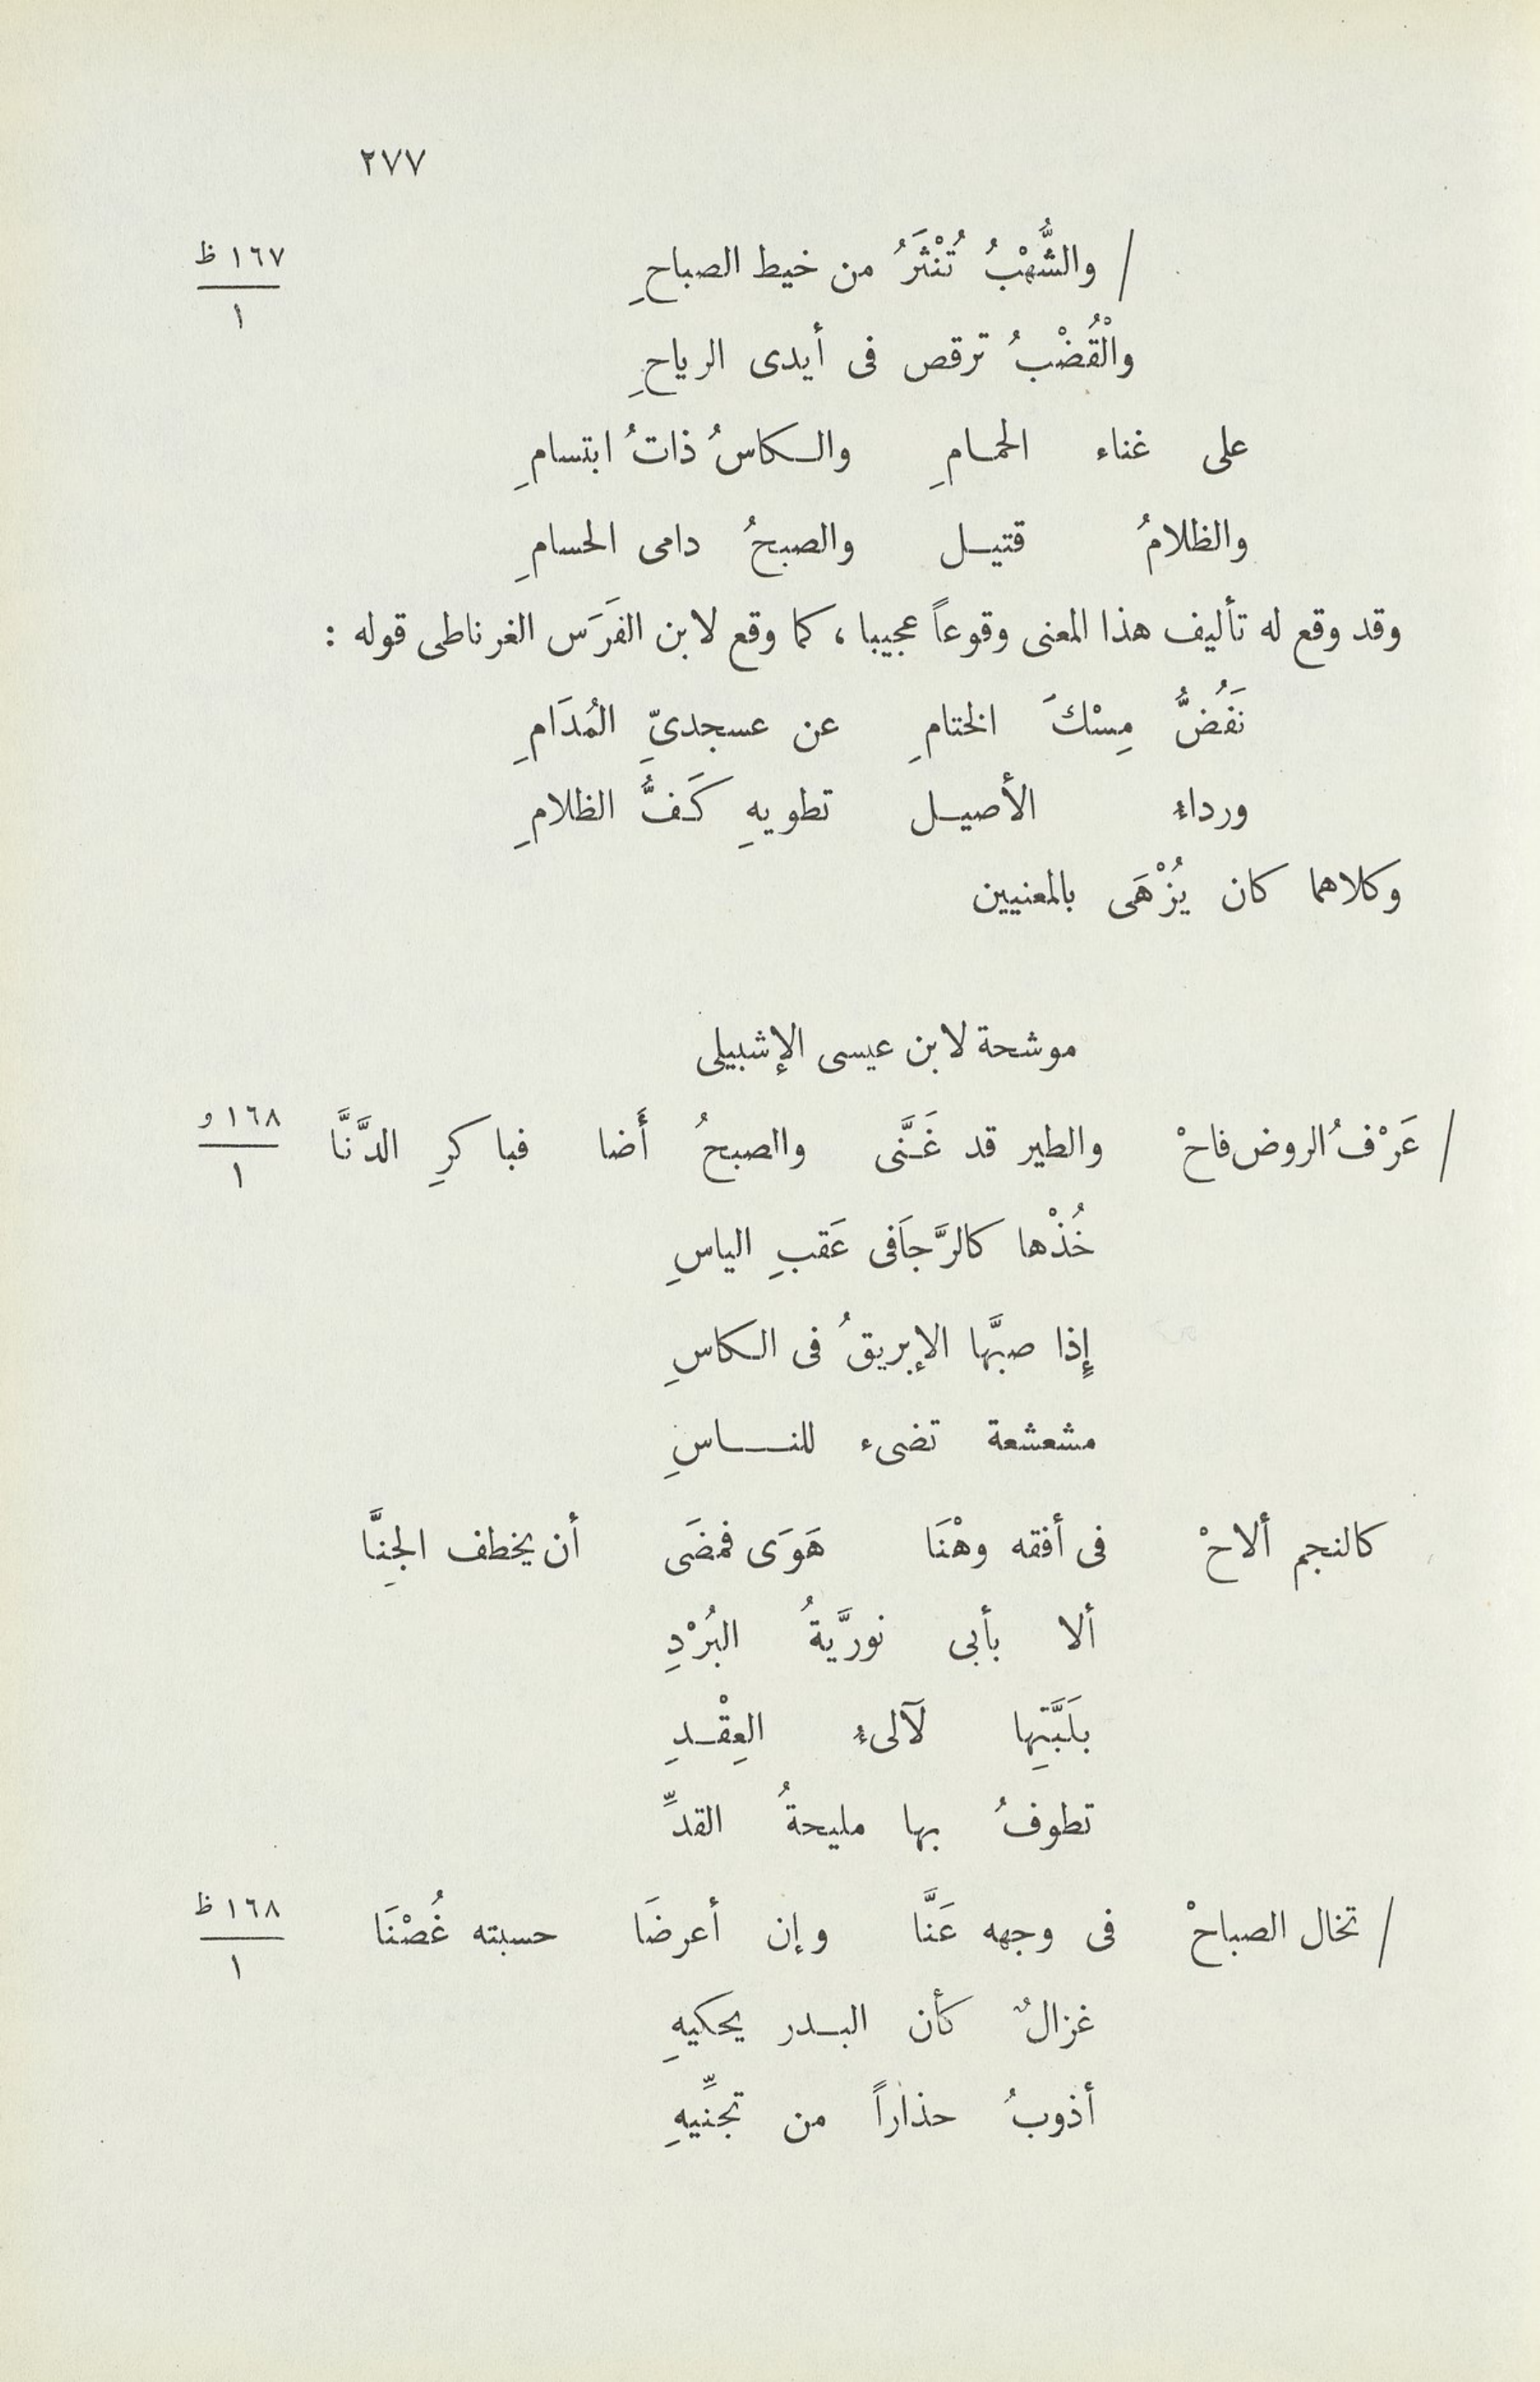 ٢٧٧
/ والشُّهْبُ تُنْثَرُ من خيط الصباحِ
١٦٧ ظ
١
والْقُضْبُ ترقص فى أيدى الرياحِ
على غناء الحمامِ والكاسُ ذاتُ ابتسامِ
والظلامُ قتيل والصبحُ دامى الحسامِ
وقد وقع له تأليف هذا المعنى وقوعاً عجيبا ، كما وقع لابن الفَرَس الغرناطى قوله :
نَفُضُّ مِسْكَ الختامِ عن عسجدىِّ المُدَامِ
ورداءِ الأصيل تطويهِ كَفُّ الظلامِ
وكلاهما كان يُزْهَى بالمعنيين
موشحة لابن عيسى الإشبيلى
/ عَرْفُ الروض فاحْ والطير قد غَنَّى والصبحُ أَضا فباكرِ الدَّنَّا
١٦٨ و
١
خُذْها كالرَّجاَ فى عَقبِ الياسِ
إِذا صبَّها الإبريقُ فى الكاسِ
مشعشعة تضىء للناسِ
كالنجم ألاحْ فى أفقه وهْنَا هَوَى فمضَى أن يخطف الجِنَّا
ألا بأبى نورَّيةُ البُرْدِ
بلَبَّتِها لَآلىءِ العِقْدِ
تطوفُ بها مليحةُ القدِّ
/ تخال الصباحْ فى وجهه عَنَّا وإن أعرضَا حسبته غُصْنَا
١٦٨ ظ
١
غزالٌ كأن البدر يحكيهِ
أذوبُ حذاراً من تجنِّيهِ